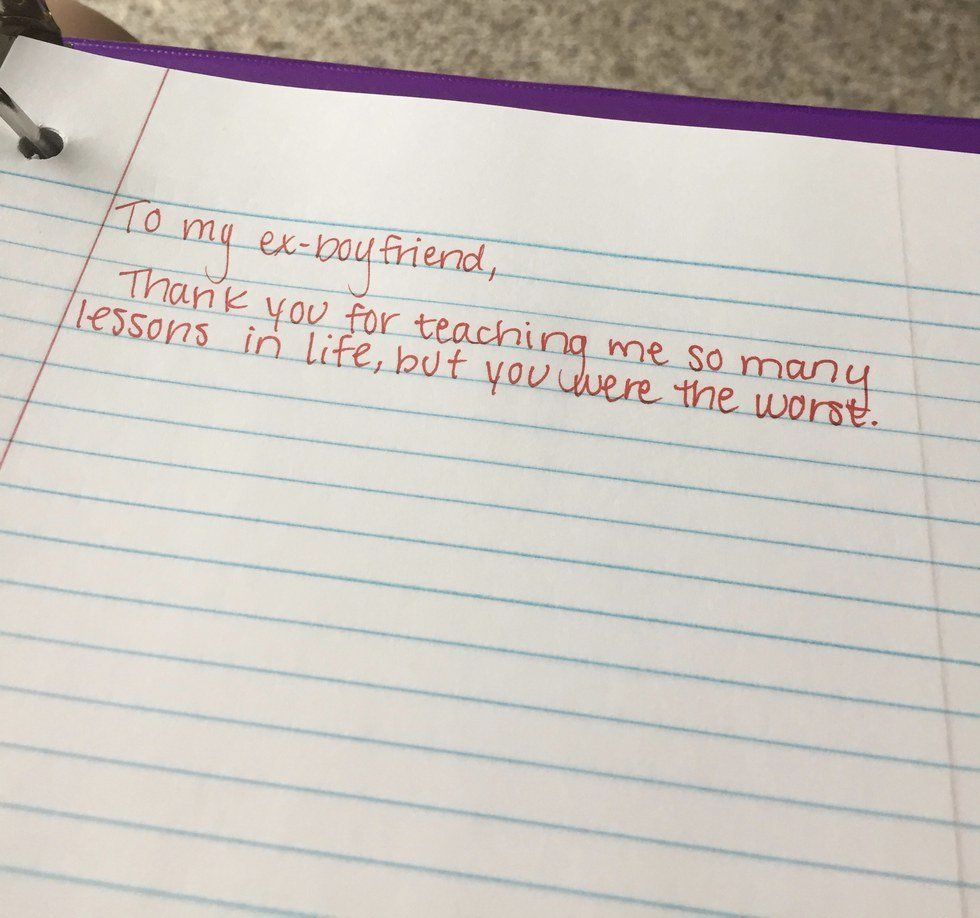 To my ex-boyfriend,
Thank you for teaching me so many
lessons in life, but you were the worst.